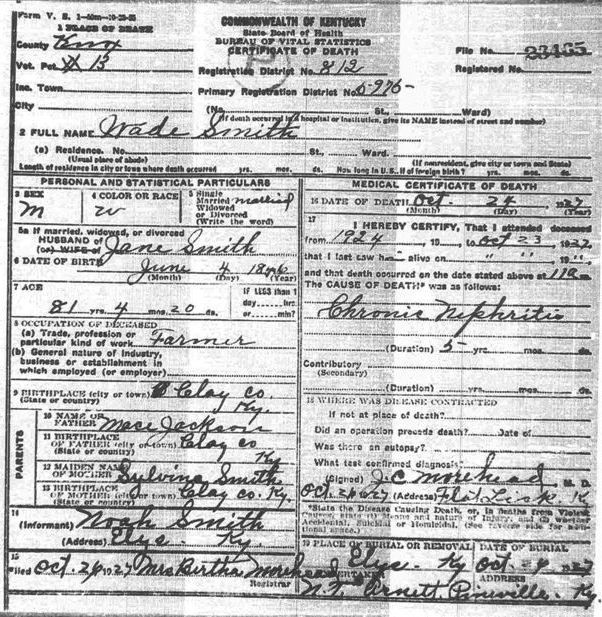 Form V. S. 1-
COMMONWEALTH OF KENTUCKY
1 PLACE OF DEATH
State Board of Health
County Knox
BUREAU OF VITAL STATISTICS
CERTIFICATE OF DEATH
File No. 23465
Vot. Pct. # 13
Registration District No. 812
Registered No.
Inc. Town
Primary Registration District No. 5976-
City
(No. St., Ward)
(If death occurred in a hospital or institution, give its NAME instead of street and number)
2 FULL NAME Wade Smith
(a) Residence. No. St., Ward.
(Usual place of abode) (If nonresident, give city or town and State)
Length of residence in city or town where death occurred yrs. mos. ds. How long in U.S., if of foreign birth? yrs. mos. ds.
PERSONAL AND STATISTICAL PARTICULARS
3 SEX M
4 COLOR OR RACE W
5 Single Married Widowed or Divorced (Write the word) Married
5a If married, widowed, or divorced
HUSBAND of (or) WIFE of Jane Smith
6 DATE OF BIRTH June 4 1846
(Month) (Day) (Year)
7 AGE 81 yrs. 4 mos. 20 ds.
If LESS than 1 day hrs. or min.?
8 OCCUPATION OF DECEASED
(a) Trade, profession or particular kind of work Farmer
(b) General nature of industry, business or establishment in which employed (or employer)
9 BIRTHPLACE (city or town) Clay co.
(State or country) Ky.
PARENTS
10 NAME OF FATHER Mace Jackson
11 BIRTHPLACE OF FATHER (city or town) Clay co
(State or country) Ky
12 MAIDEN NAME OF MOTHER Sylvina Smith
13 BIRTHPLACE OF MOTHER (city or town) Clay co. Ky.
(State or country)
14
(Informant) Noah Smith
(Address) Elys. Ky.
15
Filed Oct. 26 1927 Mrs Bertha Morehead
Registrar
MEDICAL CERTIFICATE OF DEATH
16 DATE OF DEATH Oct. 24 1927
(Month) (Day) (Year)
17
I HEREBY CERTIFY, That I attended deceased
from 1924, 19 to Oct 23 1927
that I last saw him alive on " " 19"
and that death occurred on the date stated above at 11 a m.
The CAUSE OF DEATH* was as follows:
Chronic Nephritis
(Duration) 5- yrs. mos. ds.
Contributory
(Secondary)
(Duration) yrs. mos. ds.
18 WHERE WAS DISEASE CONTRACTED
If not at place of death?
Did an operation precede death? Date of
Was there an autopsy?
What test confirmed diagnosis?
(Signed) J. C. Morehead M. D.
Oct. 26 1927 (Address) Flat Lick Ky
*State the Disease Causing Death, or, in Deaths from Violent Causes, state (1) Means and nature of Injury, and (2) whether Accidental, Suicidal or Homicidal. (See reverse side for additional space.)
19 PLACE OF BURIAL OR REMOVAL DATE OF BURIAL
Elys. Ky Oct. 1927
ADDRESS
Arnett Pineville. Ky.